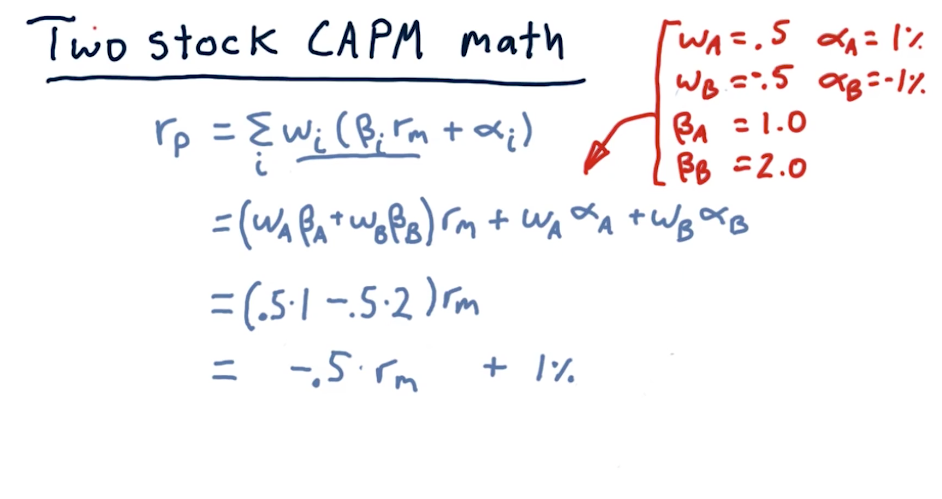 Two stock CAPM math
w_A = .5 α_A = 1%
w_B = -.5 α_B = -1%
β_A = 1.0
β_B = 2.0
r_p = Σ_i w_i (β_i r_m + α_i)
= (w_A β_A + w_B β_B) r_m + w_A α_A + w_B α_B
= (.5·1 - .5·2) r_m
= -.5· r_m + 1%